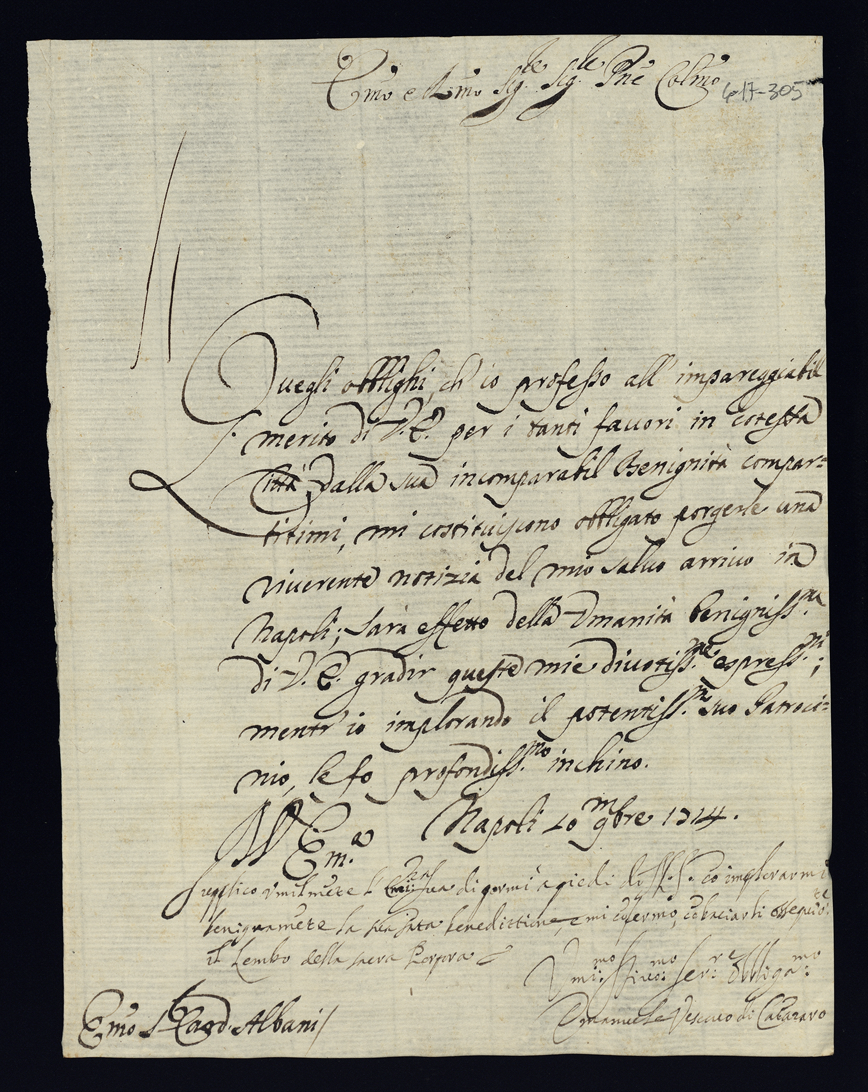 Emo e Rmo Sig.re Sig.re Pne Colmo
617-305
Quegli obblighi, ch'io professo all'impareggiabil
merito di V. E. per i tanti favori in cotesta
Città dalla sua incomparabil Benignità compar=
titimi, mi costituiscono obbligato porgerle una
riverente notizia del mio salvo arrivo in
Napoli; sarà effetto della Umanità benigniss.ma
di V. E. gradir queste mie divotiss.me espress.ni;
mentr'io implorando il potentiss.mo suo Patroci=
nio, le fo profondiss.mo inchino.
Napoli 10 mbre 1714.
V. Em.a
supplico umilmete l' Em: sua di pormi a piedi di
benignamete la sua sata benedittione, e mi confermo, co baciarli
il Lembo della sacra Porpora
Umi:mo Divo:mo Ser:re Obbliga:mo
Emo S. Card Albani/
Emanuele Vescovo di